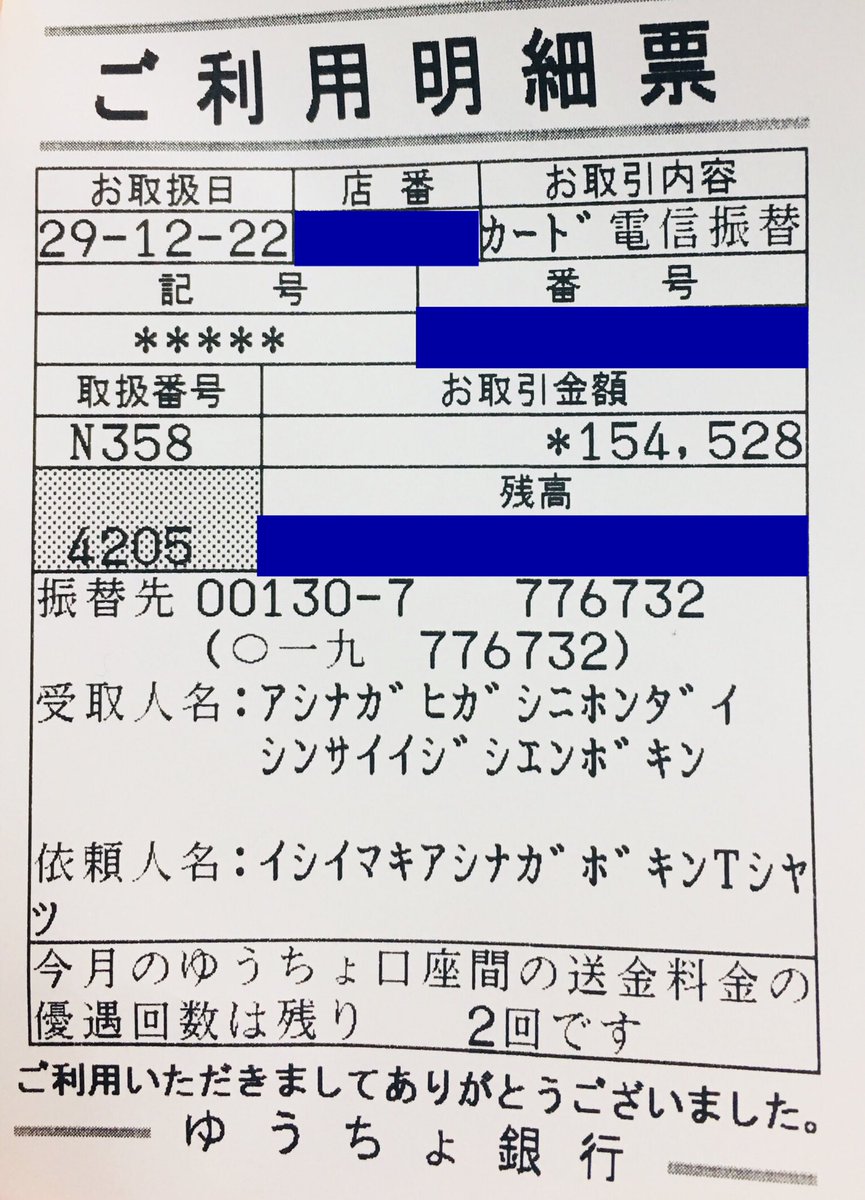 ご利用明細票
お取扱日 店番 お取引内容
29-12-22 カード電信振替
記号 番号
*****
取扱番号 お取引金額
N358 *154,528
残高
4205
振替先 00130-7 776732
(〇一九 776732)
受取人名:アシナガヒガシニホンダイ
シンサイイジシエンボキン
依頼人名:イシイマキアシナガボキンTシャ
ツ
今月のゆうちょ口座間の送金料金の
優遇回数は残り 2回です
ご利用いただきましてありがとうございました。
ゆうちょ銀行